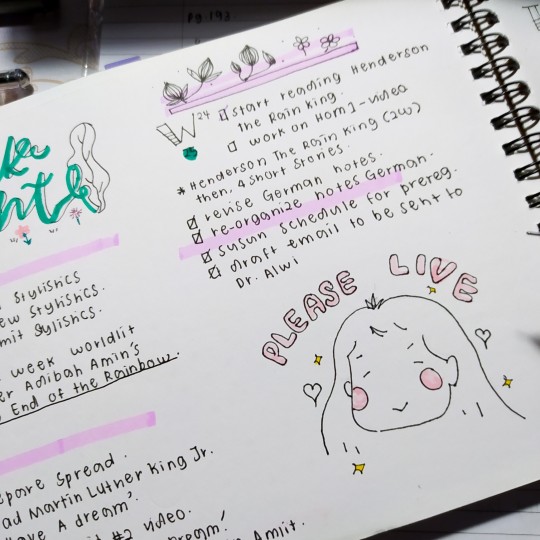 Pg.193
W 24
start reading Henderson
the Rain King.
work on Hom 1-video
* Henderson The Rain King (2w)
then, 4 short stories.
revise German notes.
re-organize notes German.
susun schedule for prereg.
draft email to be sent to
Dr. Alwi
PLEASE LIVE
stylistics
stylistics.
stylistics.
week worldlit
Adibah Amin's
End of the Rainbow.
spread.
Martin Luther King Jr.
A dream'.
#2 video.
Dream!
Amiit.